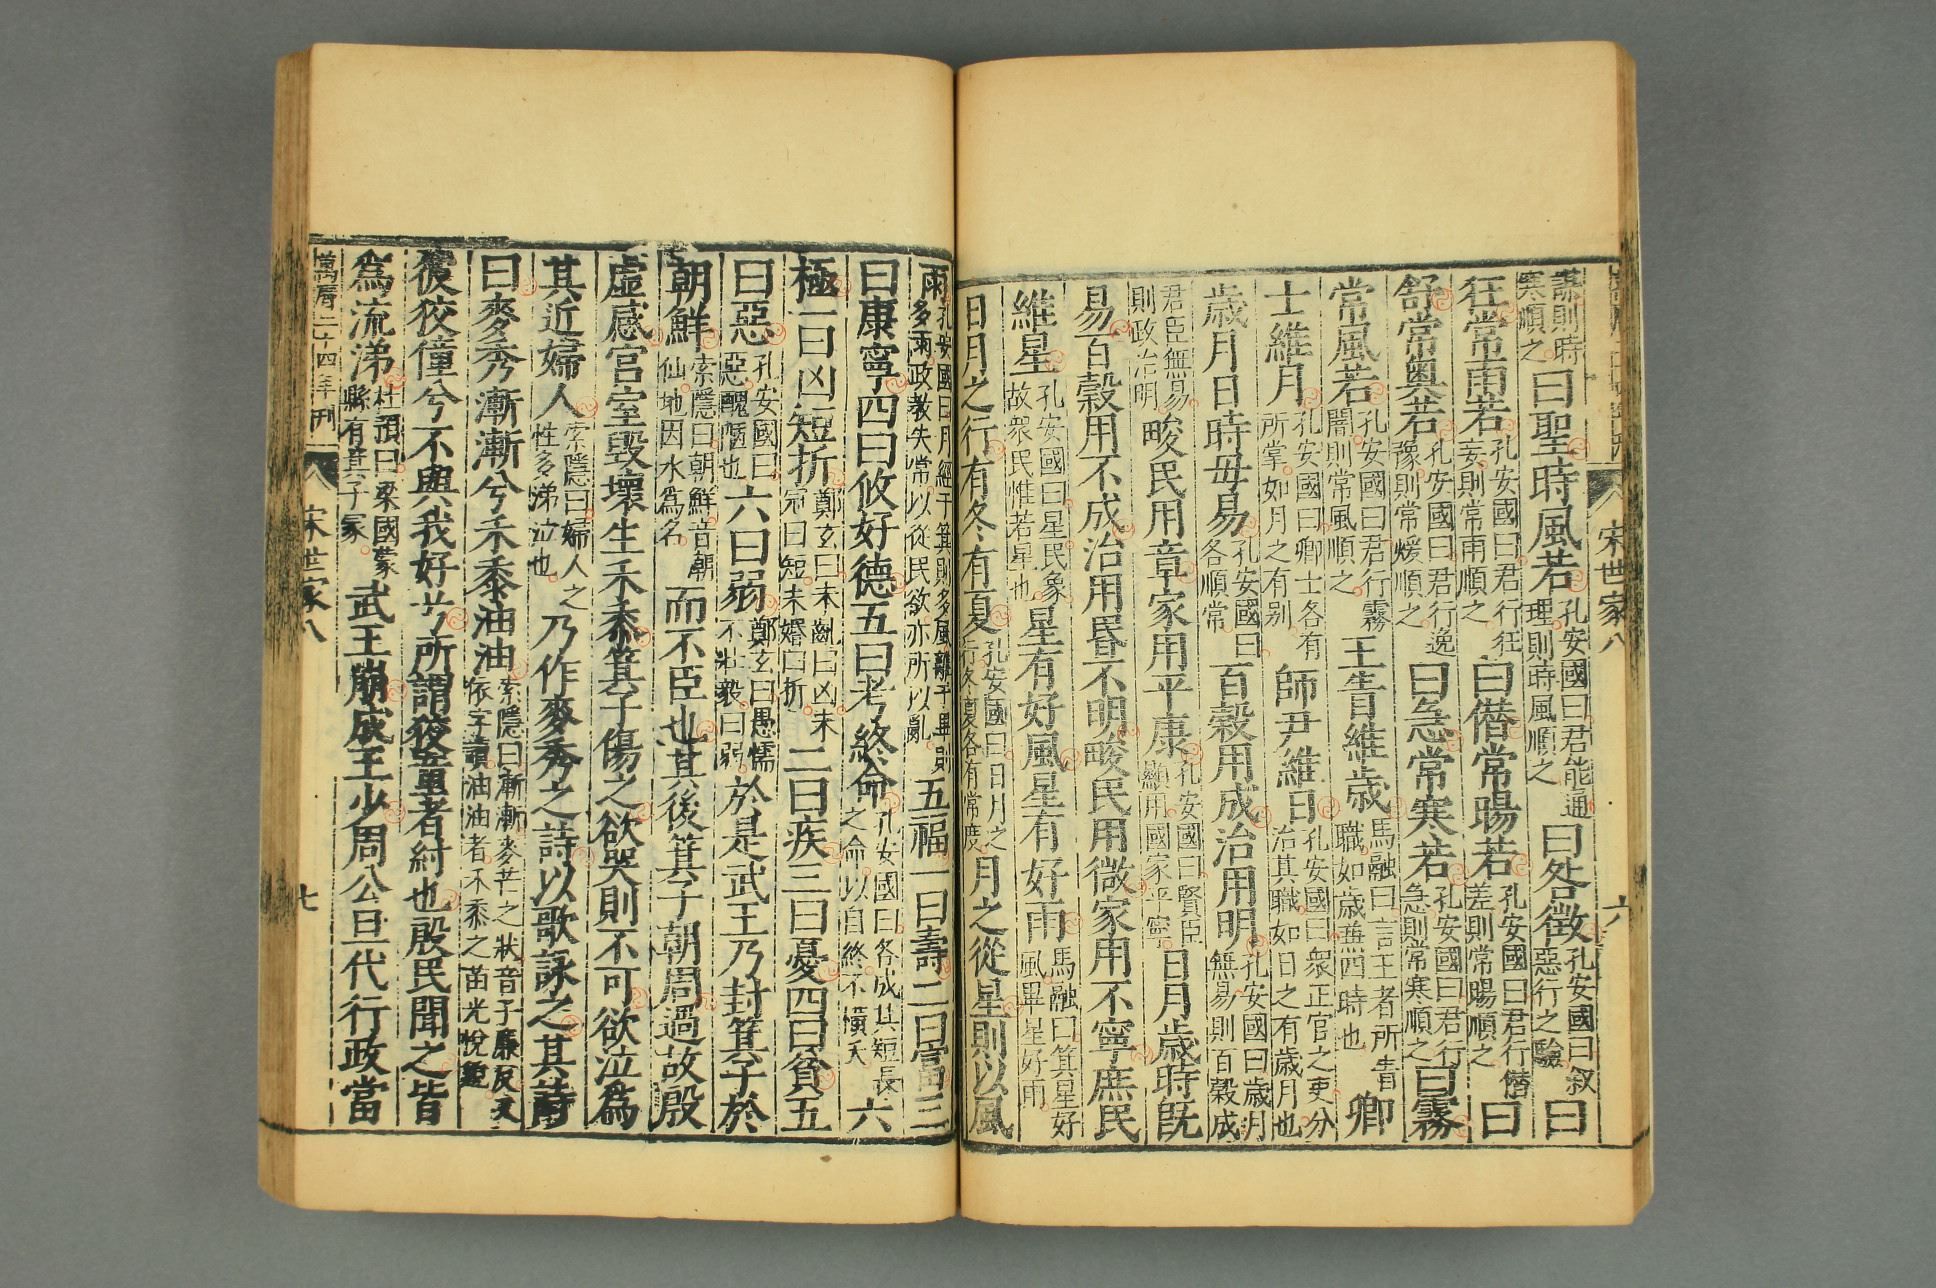 謀則時寒順之曰聖時風若孔安國曰君能通理則時風順之曰咎徵孔安國曰叙惡行之驗曰
狂常雨若孔安國曰君行狂妄則常雨順之曰僭常暘若孔安國曰君行僭差則常暘順之曰
舒常奥若孔安國曰君行逸豫則常煖順之曰急常寒若孔安國曰君行急則常寒順之曰霧
常風若孔安國曰君行霧闇則常風順之王眚維歳馬融曰言王者所眚職如歳兼四時也卿
士維月孔安國曰卿士各有所掌如月之有别師尹維日孔安國曰衆正官之吏分治其職如日之有歳月也
歳月日時毋易孔安國曰各順常百穀用成治用明孔安國曰歳月無易則百穀成
君臣無易則政治明畯民用章家用平康孔安國曰賢臣顯用國家平寧日月歳時旣
易百穀用不成治用昬不明畯民用微家用不寧庶民
維星孔安國曰星民象故衆民惟若星也星有好風星有好雨馬融曰箕星好風畢星好雨
日月之行有冬有夏孔安國曰日月之行冬夏各有常度月之從星則以風
宋世家八
六
雨孔安國曰月經于箕則多風離于畢則多雨政教失常以從民欲亦所以亂五福一曰壽二曰富三
曰康寧四曰攸好德五曰考終命孔安國曰各成其短長之命以自終不横夭六
極一曰凶短折鄭玄曰未齔曰凶未冠曰短未婚曰折二曰疾三曰憂四曰貧五
曰惡孔安國曰惡醜陋也六曰弱鄭玄曰愚懦不壯毅曰弱於是武王乃封箕子於
朝鮮索隱曰朝鮮音朝仙地因水爲名而不臣也其後箕子朝周過故殷
虚感宫室毁壞生禾黍箕子傷之欲哭則不可欲泣爲
其近婦人索隱曰婦人之性多涕泣也乃作麥秀之詩以歌詠之其詩
曰麥秀漸漸兮禾黍油油索隱曰漸漸麥芒之狀音子廉反又依字讀油油者禾黍之苗光悅貌
彼狡僮兮不與我好兮所謂狡童者紂也殷民聞之皆
爲流涕杜預曰梁國蒙縣有箕子冢武王崩成王少周公旦代行政當
萬曆二十四年刊
宋世家八
七